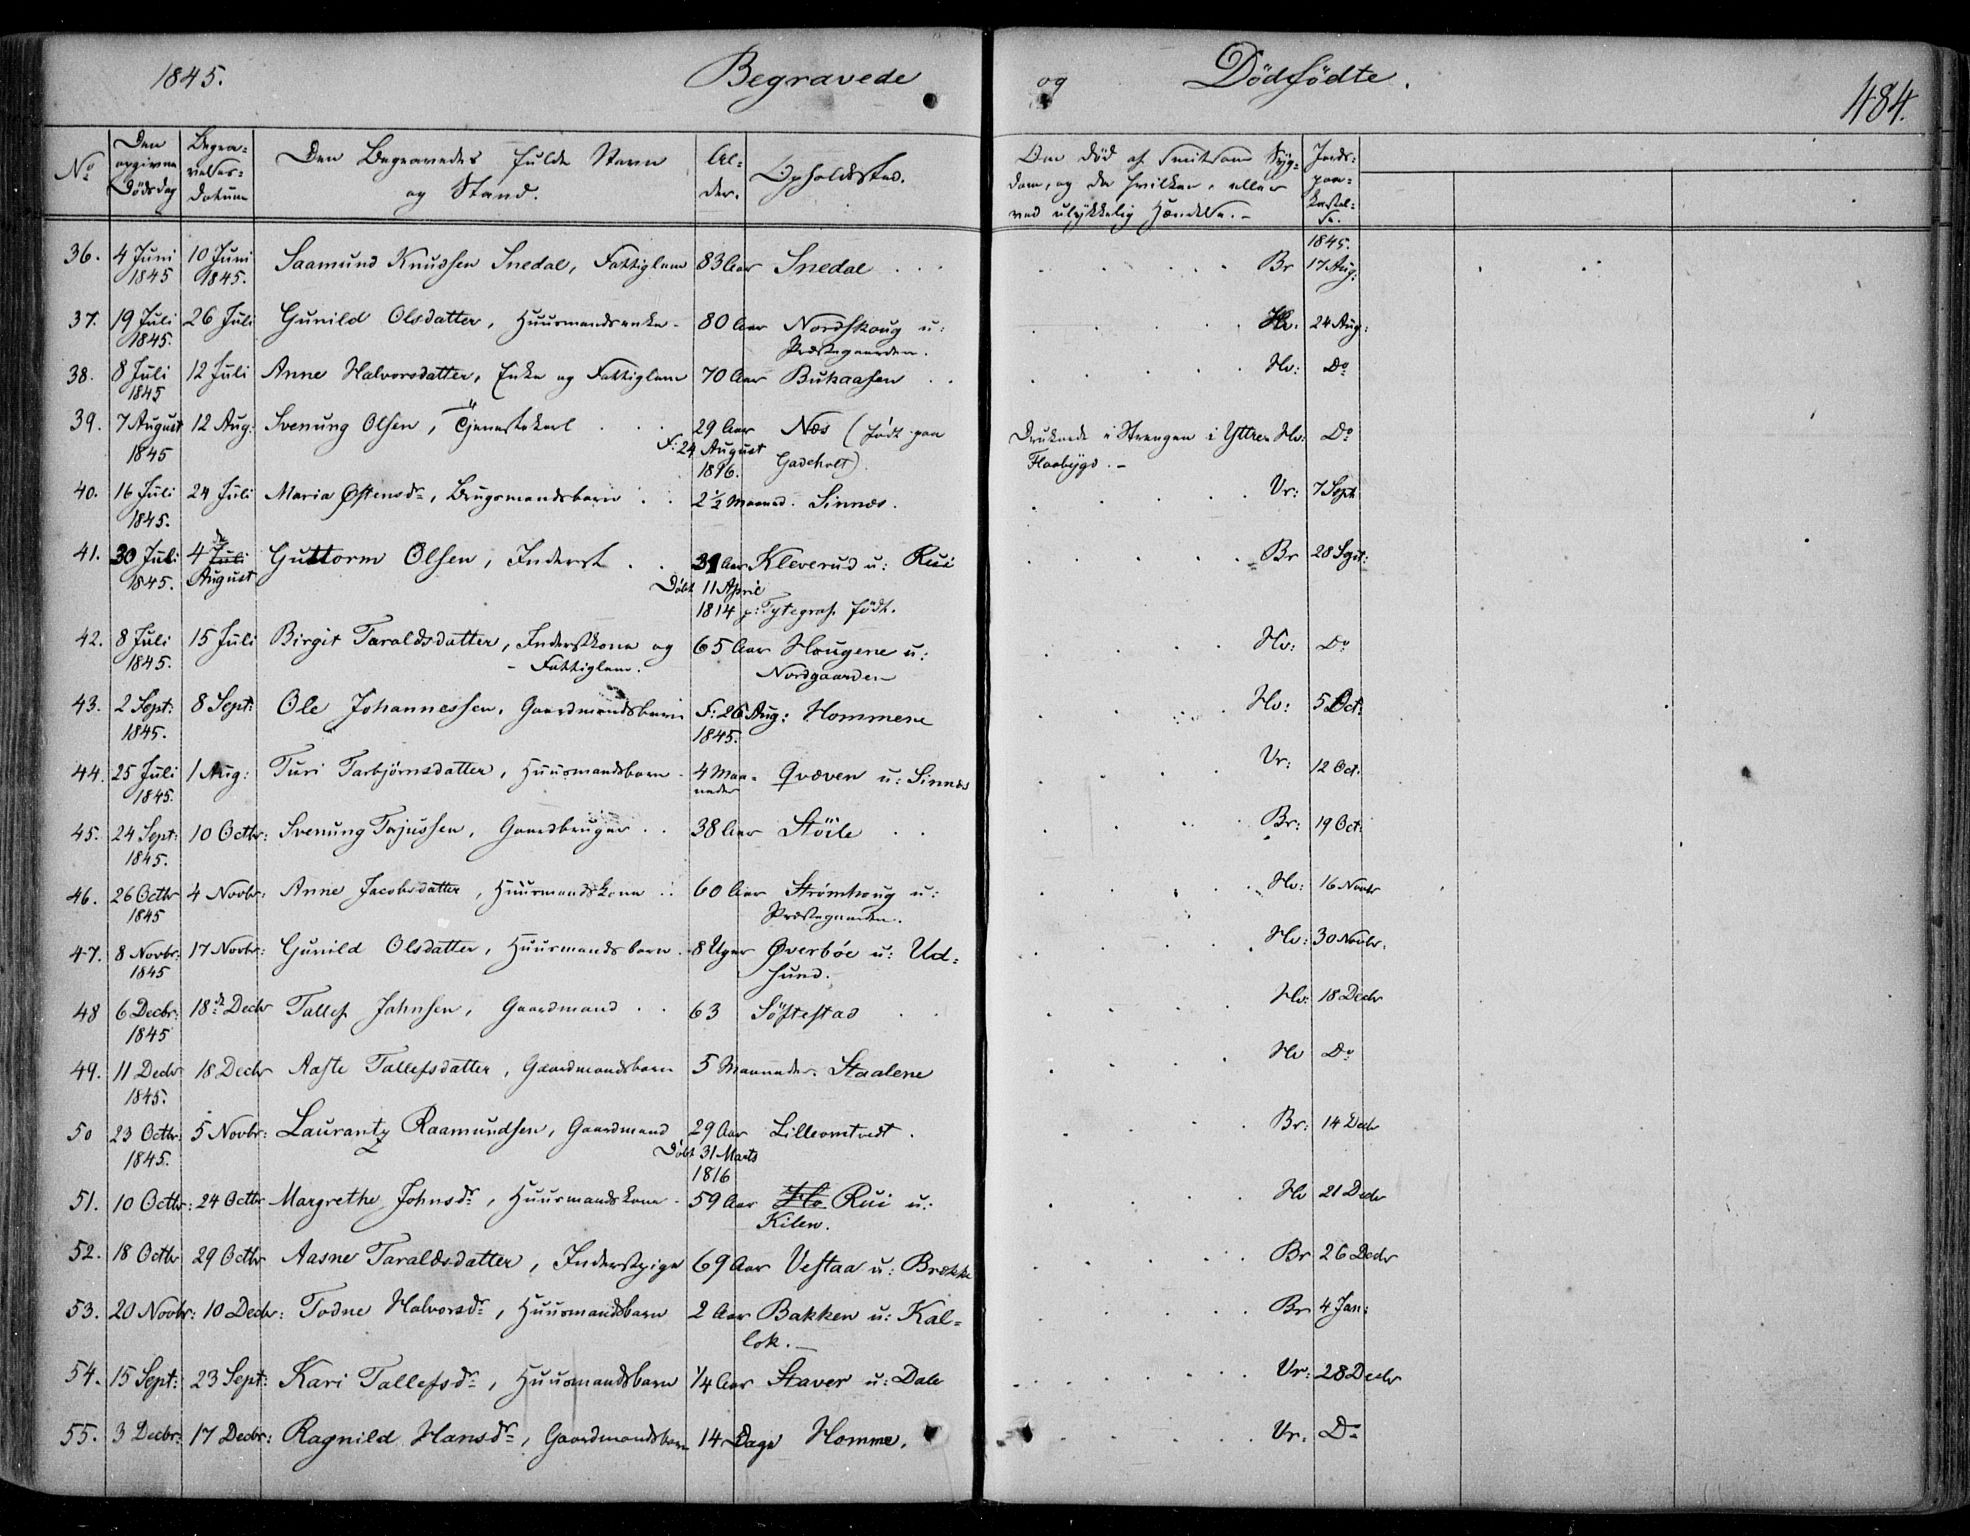 1845. Begravede og Dødfødte. 484.
No Den opgivne Dødsdag Begravelses-Datum Den Begravedes fulde Navn og Stand. Alder. Opholdssted. Om død af smitsom Sygdom, og da hvilken, eller ved ulykkelig Hændelse. Jordspaakastelse.
1845.
36. 4 Juni 10 Juni Saamund Knudsen Snedal, Fattiglem 83 Aar Snedal Br 17 Aug:
1845 1845.
37. 19 Juli 26 Juli Gunild Olsdatter, Huusmandsenke 80 Aar Nordskoug u: Hv: 24 Aug:
1845. Præstegaarden.
38. 8 Juli 12 Juli Anne Halvorsdatter, Enke og Fattiglem 70 Aar Bukaasen Hv: Do
1845
39. 7 August 12 Aug: Svenung Olsen, Tjenestekarl 29 Aar Næs (født paa Druknede i Strengen i Yttre Hv: Do
1845 F: 24 August Gadeholt). Flaabygd.
1816.
40. 16 Juli 24 Juli Maria Østensdr, Brugsmandsbarn 2½ Maaned. Sinnes. Vr: 7 Sept
1845.
41. 30 Juli 4 Juli Guttorm Olsen, Inderst 31 Aar Kleverud u: Rui Br 28 Sept:
1845. August Døbt 11 April
1814 p: Tytegraf født.
42. 8 Juli 15 Juli Birgit Taraldsdatter, Inderstkone og 65 Aar Hougene u: Hv: Do
1845. Fattiglem. Nordgaarden
43. 2 Sept: 8 Sept: Ole Johannessen, Gaardmandsbarn F: 26 Aug: Hommene Hv: 5 Oct:
1845. 1845.
44. 25 Juli 1 Aug: Turi Tarbjørnsdatter, Huusmandsbarn 4 Maa- Qvæven u: Sinnes Vr: 12 Oct.
1845. neder
45. 24 Sept: 10 Octbr: Svenung Torjussen, Gaardbruger 38 Aar Støile Br: 19 Oct:
1845.
46. 26 Octbr 4 Novbr: Anne Jacobsdatter, Huusmandskone 60 Aar Strømhoug u: Hv: 16 Novbr
1845 Præstegaarden.
47. 8 Novbr: 17 Novbr: Gunild Olsdatter, Huusmandsbarn 8 Uger Øverbøe u: Ud- Hv: 30 Novbr.
1845 hund.
48 6 Decbr: 18de Decbr Tallef Johnsen, Gaardmand 63 Søftestad Hv: 18 Decbr
1845
49. 11 Decbr 18 Decbr Aaste Tallefsdatter, Gaardmandsbarn 5 Maaneder. Staalene Hv Do
1845.
50 23 Octbr: 5 Novbr: Laurantz Raamundsen, Gaardmand 29 Aar Lilleomtvedt. Br: 14 Decbr
1845. Døbt 31 Marts
1816
51. 10 Octbr: 24 Octbr Margrethe Johnsdr, Huusmandskone 59 Aar Rui u: Hv 21 Decbr
Kilen.
52. 18 Octbr 29 Octbr Aasne Taraldsdatter, Inderstpige 69 Aar Vestaa u: Brække Br 26 Decbr
53. 20 Novbr: 10 Decbr: Todne Halvorsdr, Huusmandsbarn 2 Aar Bakken u: Kal- Br 4 Jan:
lok.
54. 15 Sept: 23 Sept: Kari Tallefsdr, Huusmandsbarn 1/4 Aar Staver u: Dale Vr: 28 Decbr
55. 3 Decbr: 17 Decbr: Ragnild Hansdr, Gaardmandsbarn 14 Dage Homme. Vr. Do